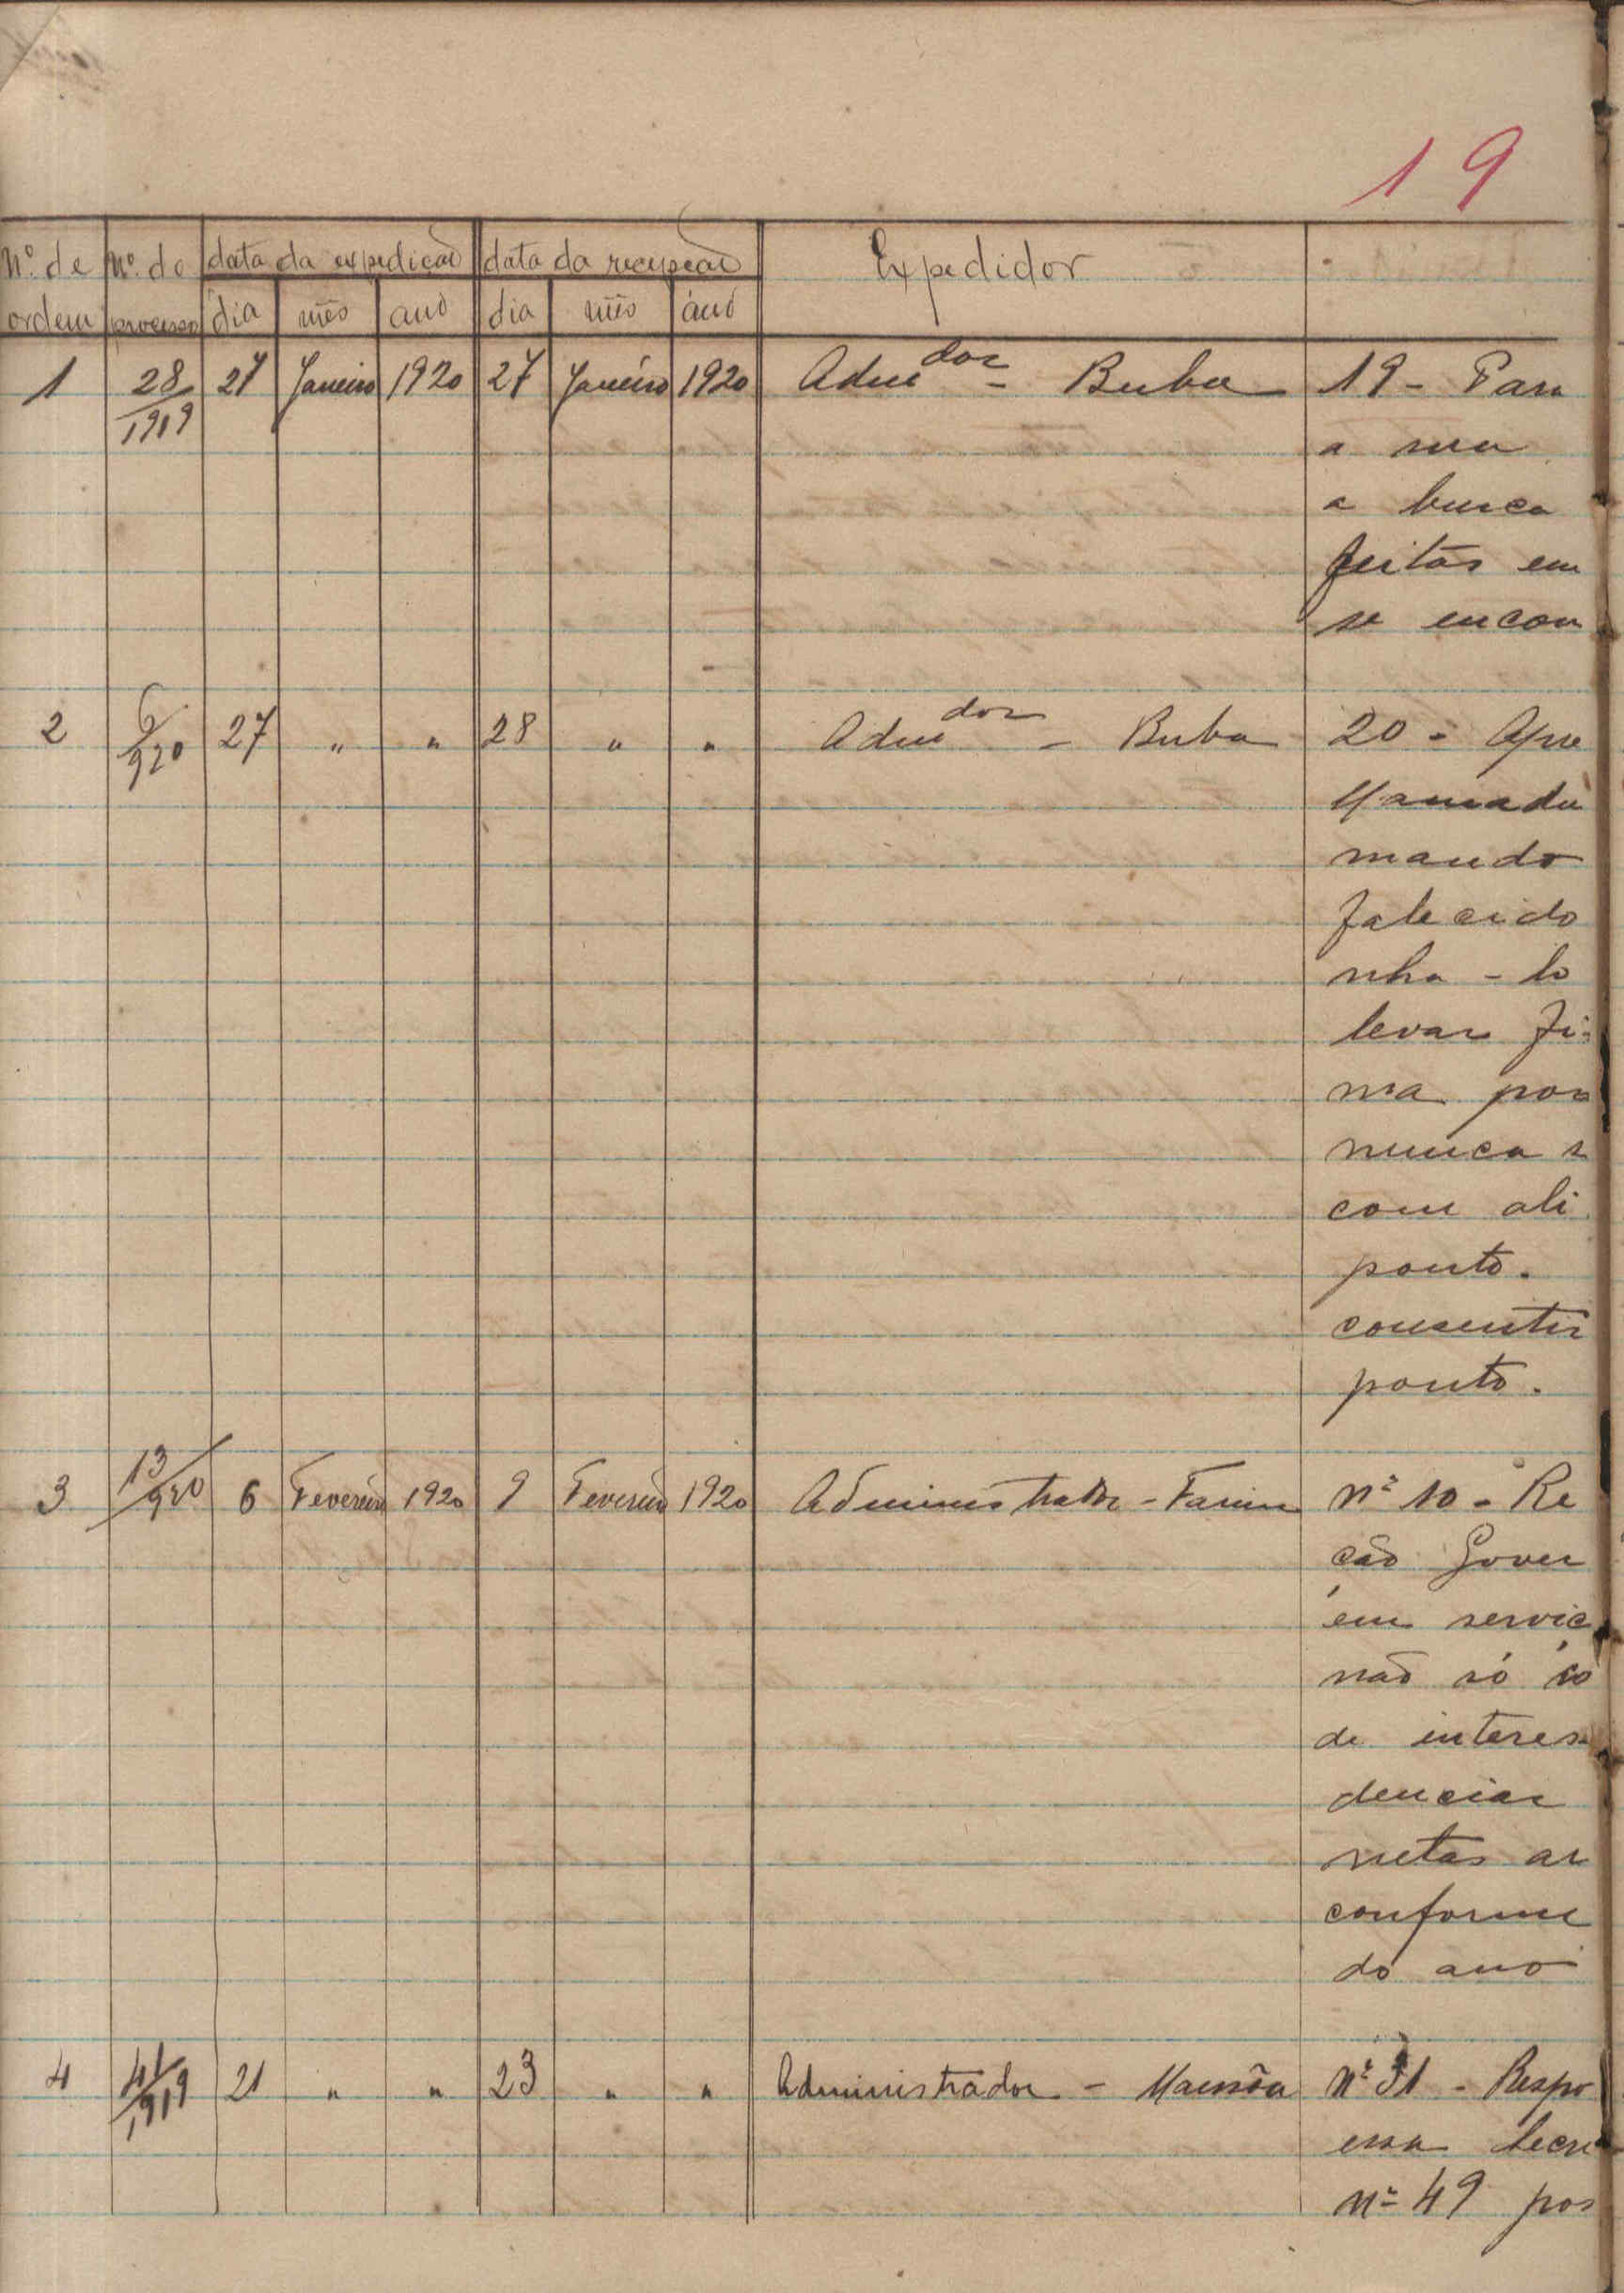 19
Nº de ordem Nº do processo data da expedição data da recepção Expedidor
dia mês ano dia mês ano
1 28/1919 27 Janeiro 1920 27 Janeiro 1920 Admdor - Buba 19 - Para
a sua
a busca
feitas em
se encon
2 6/920 27 " " 28 " " Admdor - Buba 20 - Apre
Mamadu
mando
falecido
nha - lo
levar fi
ma por
nunca s
com ali
ponto.
consentir
ponto.
3 13/920 6 Fevereiro 1920 9 Fevereiro 1920 Administrador - Farim nº 10 - Re
ção Gover
em serviç
não só co
de interes
denciar
netas ar
conforme
do ano
4 41/1919 21 " " 23 " " Administrador - Mansôa Nº 31 - Respo
essa Secre
nº 49 pos